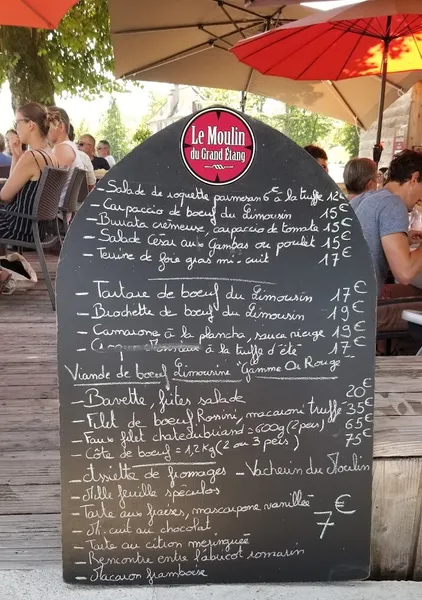 Le Moulin
du Grand Étang
- Salade de roquette parmesan et à la truffe 12€
- Carpaccio de boeuf du Limousin 15€
- Burrata crémeuse, carpaccio de tomate 15€
- Salade Cesar aux Gambas ou poulet 15€
- Terrine de foie gras mi-cuit 17€
- Tartare de boeuf du Limousin 17€
- Brochette de boeuf du Limousin 19€
- Camarone à la plancha, sauce vierge 19€
- Croque Monsieur à la truffe d'été 17€
Viande de boeuf Limousine "Gamme Or Rouge"
- Bavette, frites salade 20€
- Filet de boeuf Rossini, macaroni truffe 35€
- Faux filet chateaubriand = 600g (2 pers) 65€
- Côte de boeuf = 1,2kg (2 ou 3 pers) 75€
- Assiette de fromages - Vacherin du Moulin
- Mille feuille spéculos
- Tarte aux fraises, mascarpone vanillée
- Mi-cuit au chocolat 7€
- Tarte au citron meringuée
- Rencontre entre l'abricot romarin
- Macaron framboise